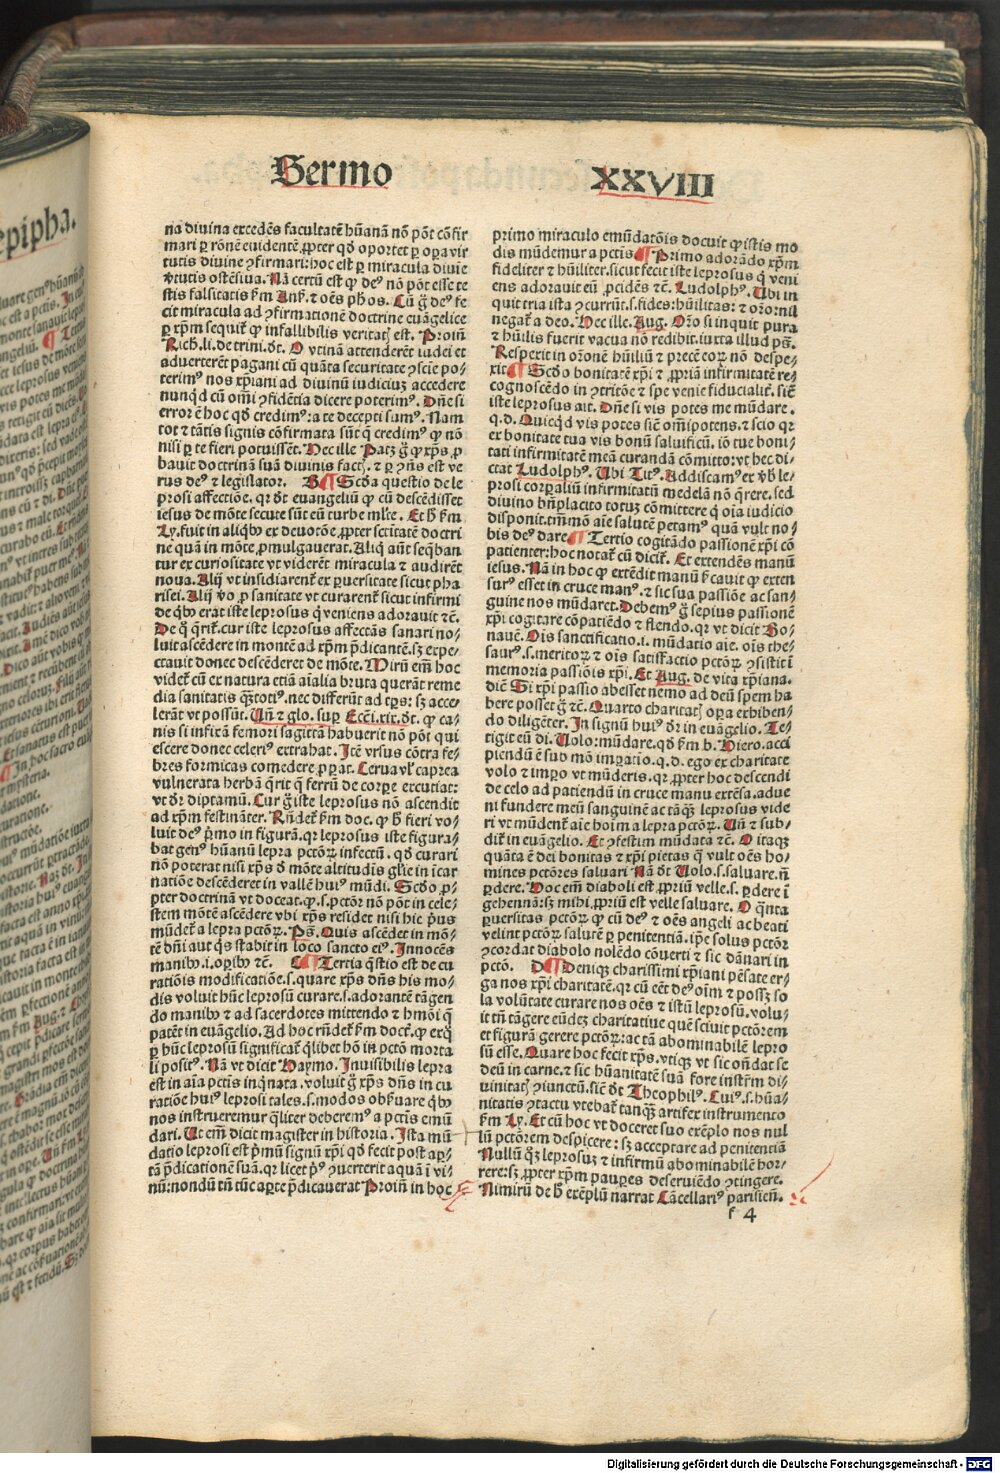 Sermo
XXVIII
na diuina excedẽs facultatẽ hũanã nõ põt cõfir
mari ꝑ rõnẽ euidentẽ ꝓpter qđ oportet ꝑ oꝑa vir
tutis diuine ꝯfirmari: hoc est ꝑ miracula diuie
v̉tutis ostẽsiua. Nã certũ est ꝙ deꝰ nõ põt esse te
stis falsitatis ẜm Anẜ. ⁊ oẽs pħos. Cũ g̊ deꝰ fe
cit miracula ad ꝯfirmationẽ doctrine euãgelice
ꝑ xp̃m sequit̃ ꝙ infallibilis veritatꝭ est. Proiñ
Rich. li. de trini. đt. O vtinã attenderẽt iudei et
aduerterẽt pagani cũ quãta securitate ꝯscie po-
terimꝰ nos xp̃iani ad diuinũ iudiciuꝫ accedere
nunqđ cũ om̃i ꝯfidẽtia dicere poterimꝰ. Dñe si
error ẽ hoc qđ credimꝰ: a te decepti sumꝰ. Nam
tot ⁊ tãtis signis cõfirmata sũt q̃ credimꝰ ꝙ nõ
nisi ꝑ te fieri potuissẽt. Hec ille Patꝫ g̊ ꝙ xp̃s ꝓ
bauit doctrinã suã diuinis factꝭ. ⁊ ꝑ ꝯñs est ve
rus deꝰ ⁊ legislator. B ¶ Scđa questio de le
prosi affectiõe. qꝛ đt euangeliũ ꝙ cũ descẽdisset
iesus de mõte secute sũt eũ turbe ml̃te. Et ħ ẜm
Ly. fuit in aliqꝰ ex deuotõe ꝓpter sctitatẽ doctri
ne quã in mõte ꝓmulgauerat. Aliq̃ aũt seq̃ban
tur ex curiositate vt viderẽt miracula ⁊ audirẽt
noua. Alij vt insidiarent̃ ex ꝑuersitate sicut pha
risei. Alij v̊o ꝓ sanitate vt curarent̃ sicut infirmi
de qꝰ erat iste leprosus q̃ veniens adorauit ⁊c̃.
De q̊ q̃rit̃. cur iste leprosus affectãs sanari no-
luit ascẽdere in montẽ ad xp̃m p̃dicantẽ. sꝫ expe-
ctauit donec descẽderet de mõte. Mirũ em̃ hoc
videt̃ cũ ex natura etiã aĩalia bruta querãt reme
dia sanitatis q̃ꝫtotiꝰ. nec differũt ad tp̃s: sꝫ acce
lerãt vt possũt. Uñ ⁊ glo. suꝑ Ecc̃i. xix. đt. ꝙ ca-
nis si infixã femori sagittã habuerit nõ põt qui
escere donec celeriꝰ extrahat. Itẽ vrsus cõtra fe-
bres formicas comedere ꝓꝑat. Cerua vl̃ caprea
vulnerata herbã q̃rit q̃ ferrũ de corꝑe excutiat:
vt đꝛ diptamũ. Cur g̊ iste leprosus nõ ascendit
ad xp̃m festinãter. Rñdet̃ ẜm doc. ꝙ ħ fieri vo-
luit deꝰ p̃mo in figurã. qꝛ leprosus iste figura-
bat genꝰ hũanũ lepra pctõꝝ infectũ. qđ curari
nõ poterat nisi xp̃s đ mõte altitudĩs gl̃ie in icar
natiõe descẽderet in vallẽ huiꝰ mũdi. Scđo ꝓ-
pter doctrinã vt doceat. ꝙ. s. pctõr nõ põt in cele-
stem mõtẽ ascẽdere vbi xp̃s residet nisi hic p̃us
mũdet̃ a lepra pctõꝝ. Ps̃. Quis ascẽdet in mõ-
tẽ dñi aut q̃s stabit in loco sancto eiꝰ. Innocẽs
manibꝰ. i. oꝑibꝰ ⁊c̃. C ¶ Tertia q̃stio est de cu
ratiõis modificatiõe. s. quare xp̃s dñs his mo-
dis voluit hũc leprosũ curare. s. adorantẽ tãgen
do manibꝰ ⁊ ad sacerdotes mittendo ⁊ hm̃õi q̃
patẽt in euãgelio. Ad hoc rñdet̃ ẜm doct̃. ꝙ exq̊
ꝑ hũc leprosũ significat̃ q̃libet hõ in pctõ morta
li positꝰ. Nã vt dicit Haymo. Inuisibilis lepra
est in aĩa pctis inq̃nata. voluit g̊ xp̃s dñs in cu
ratiõe huiꝰ leprosi tales. s. modos obẜuare qꝰ
nos instrueremur q̃liter deberemꝰ a pctis emũ
dari. Ut em̃ dicit magister in historia. Ista mũ
datio leprosi est p̃mũ signũ xp̃i qđ fecit post aꝑ-
tã p̃dicationẽ suã. qꝛ licet pꝰ ꝯuerterit aquã ĩ vi-
nũ: nondũ tñ tũc aꝑte p̃dicauerat Proiñ in hoc
primo miraculo emũdatõis docuit ꝙ istis mo
dis mũdemur a pctis ¶ Primo adorãdo xp̃m
fideliter ⁊ hũiliter. sicut fecit iste leprosus q̃ veni
ens adorauit eũ ꝓcidẽs ⁊c̃. Ludolphꝰ. Ubi in
quit tria ista ꝯcurrũt. s. fides: hũilitas: ⁊ or̃o: nil
negat̃ a deo. Hec ille. Aug. Or̃o si inquit pura
⁊ hũilis fuerit vacua nõ redibit. iuxta illud ps̃.
Respexit in or̃onẽ hũiliũ ⁊ precẽ eoꝝ nõ despe-
xit ¶ Scđo bonitatẽ xp̃i ⁊ ꝓpriã infirmitatẽ re-
cognoscẽdo in ꝯtritõe ⁊ spe venie fiducialit̃. sic̃
iste leprosus ait. Dñe si vis potes me mũdare.
q. d. Quicq̃d vis potes sic̃ om̃ipotens. ⁊ scio qꝛ
ex bonitate tua vis bonũ saluificũ. iõ tue boni-
tati infirmitatẽ meã curandã cõmitto: vt hec di-
ctat Ludolphꝰ. Ubi Titꝰ. Addiscamꝰ ex v̊b̃ le-
prosi corꝑaliũ infirmitatũ medelã nõ q̃rere. sed
diuino bñplacito totuꝫ cõmittere q̃ oĩa iudicio
disponit. tm̃mõ aĩe salutẽ petamꝰ quã vult no-
bis deꝰ dare ¶ Tertio cogitãdo passionẽ xp̃i cõ
patienter: hoc notat̃ cũ dicit̃. Et extendẽs manũ
iesus. Nã in hoc ꝙ extẽdit manũ ẜ̃cauit ꝙ exten
surꝰ esset in cruce manꝰ. ⁊ sic sua passiõe ac san-
guine nos mũdaret. Debemꝰ g̊ sepius passionẽ
xp̃i cogitare cõpatiẽdo ⁊ flendo. qꝛ vt dicit Bo-
nauẽ. Oĩs sanctificatio. i. mũdatio aĩe. oĩs the-
saurꝰ. s. meritoꝝ ⁊ oĩs satisfactio pctõꝝ ꝯsistit ĩ
memoria passiõis xp̃i. Et Aug. de vita xp̃iana.
dic̃ Si xp̃i passio abesset nemo ad deũ spem ha
bere posset g̊ ⁊c̃. Quarto charitatꝭ oꝑa exhiben-
do diligẽter. In signũ huiꝰ đꝛ in euãgelio. Te-
tigit eũ di. Uolo: mũdare. qđ ẜm b. Hiero. acci
piendũ ẽ sub mõ imꝑatio. q. d. ego ex charitate
volo ⁊ imꝑo vt mũderis. qꝛ ꝓpter hoc descendi
de celo ad patiendũ in cruce manu extẽsa. adue
ni fundere meũ sanguinẽ ac tãq̃ꝫ leprosus vide
ri vt mũdent̃ aĩe hoĩm a lepra pctõꝝ. Uñ ⁊ sub-
dit̃ in euãgelio. Et ꝯfestim mũdata ⁊c̃. O itaqꝫ
quãta ẽ dei bonitas ⁊ xp̃i pietas q̃ vult oẽs ho-
mines pctõres saluari Nã đt Uolo. s. saluare. ñ
ꝑdere. Hoc em̃ diaboli est ꝓpriũ velle. s. ꝑdere ĩ
gehennã: sꝫ mihi ꝓpriũ est velle saluare. O q̃nta
ꝑuersitas pctõꝝ ꝙ cũ deꝰ ⁊ oẽs angeli ac beati
velint pctõꝝ salutẽ ꝑ penitentiã. ip̃e solus pctõr
ꝯcordat diabolo nolẽdo cõuerti ⁊ sic dãnari in
pctõ. D ¶ Deniqꝫ charissimi xp̃iani pẽsate er-
ga nos xp̃i charitatẽ. qꝛ cũ eẽt deꝰ oĩm ⁊ possꝫ so
la volũtate curare nos oẽs ⁊ istũ leprosũ. volu-
it tñ tãgere eũdeꝫ charitatiue quẽ sciuit pctõrem
et figurã gerere pctõꝝ: ac tã abominabilẽ lepro
sũ esse. Quare hoc fecit xp̃s. vtiqꝫ vt sic oñdat se
deũ in carne. ⁊ sic hũanitatẽ suã fore instr̃m di-
uinitatꝭ ꝯiunctũ. sic̃ đt Theophilꝰ. Cuiꝰ. s. hũa-
nitatis ꝯtactu vtebat̃ tanqꝫ artifex instrumento
ẜm Ly. Et cũ hoc vt doceret suo exẽplo nos nul
lũ pctõrem despicere: sꝫ acceptare ad penitentiã
Nullũ q̃ꝫ leprosuꝫ ⁊ infirmũ abominabilẽ hor-
rere: sꝫ ꝓpter xp̃m pauꝑes deseruiẽdo ꝯtingere.
Nimirũ de ħ exẽplũ narrat Cãcellariꝰ parisieñ.
f 4
epipha.
Digitalisierung gefördert durch die Deutsche Forschungsgemeinschaft - DFG